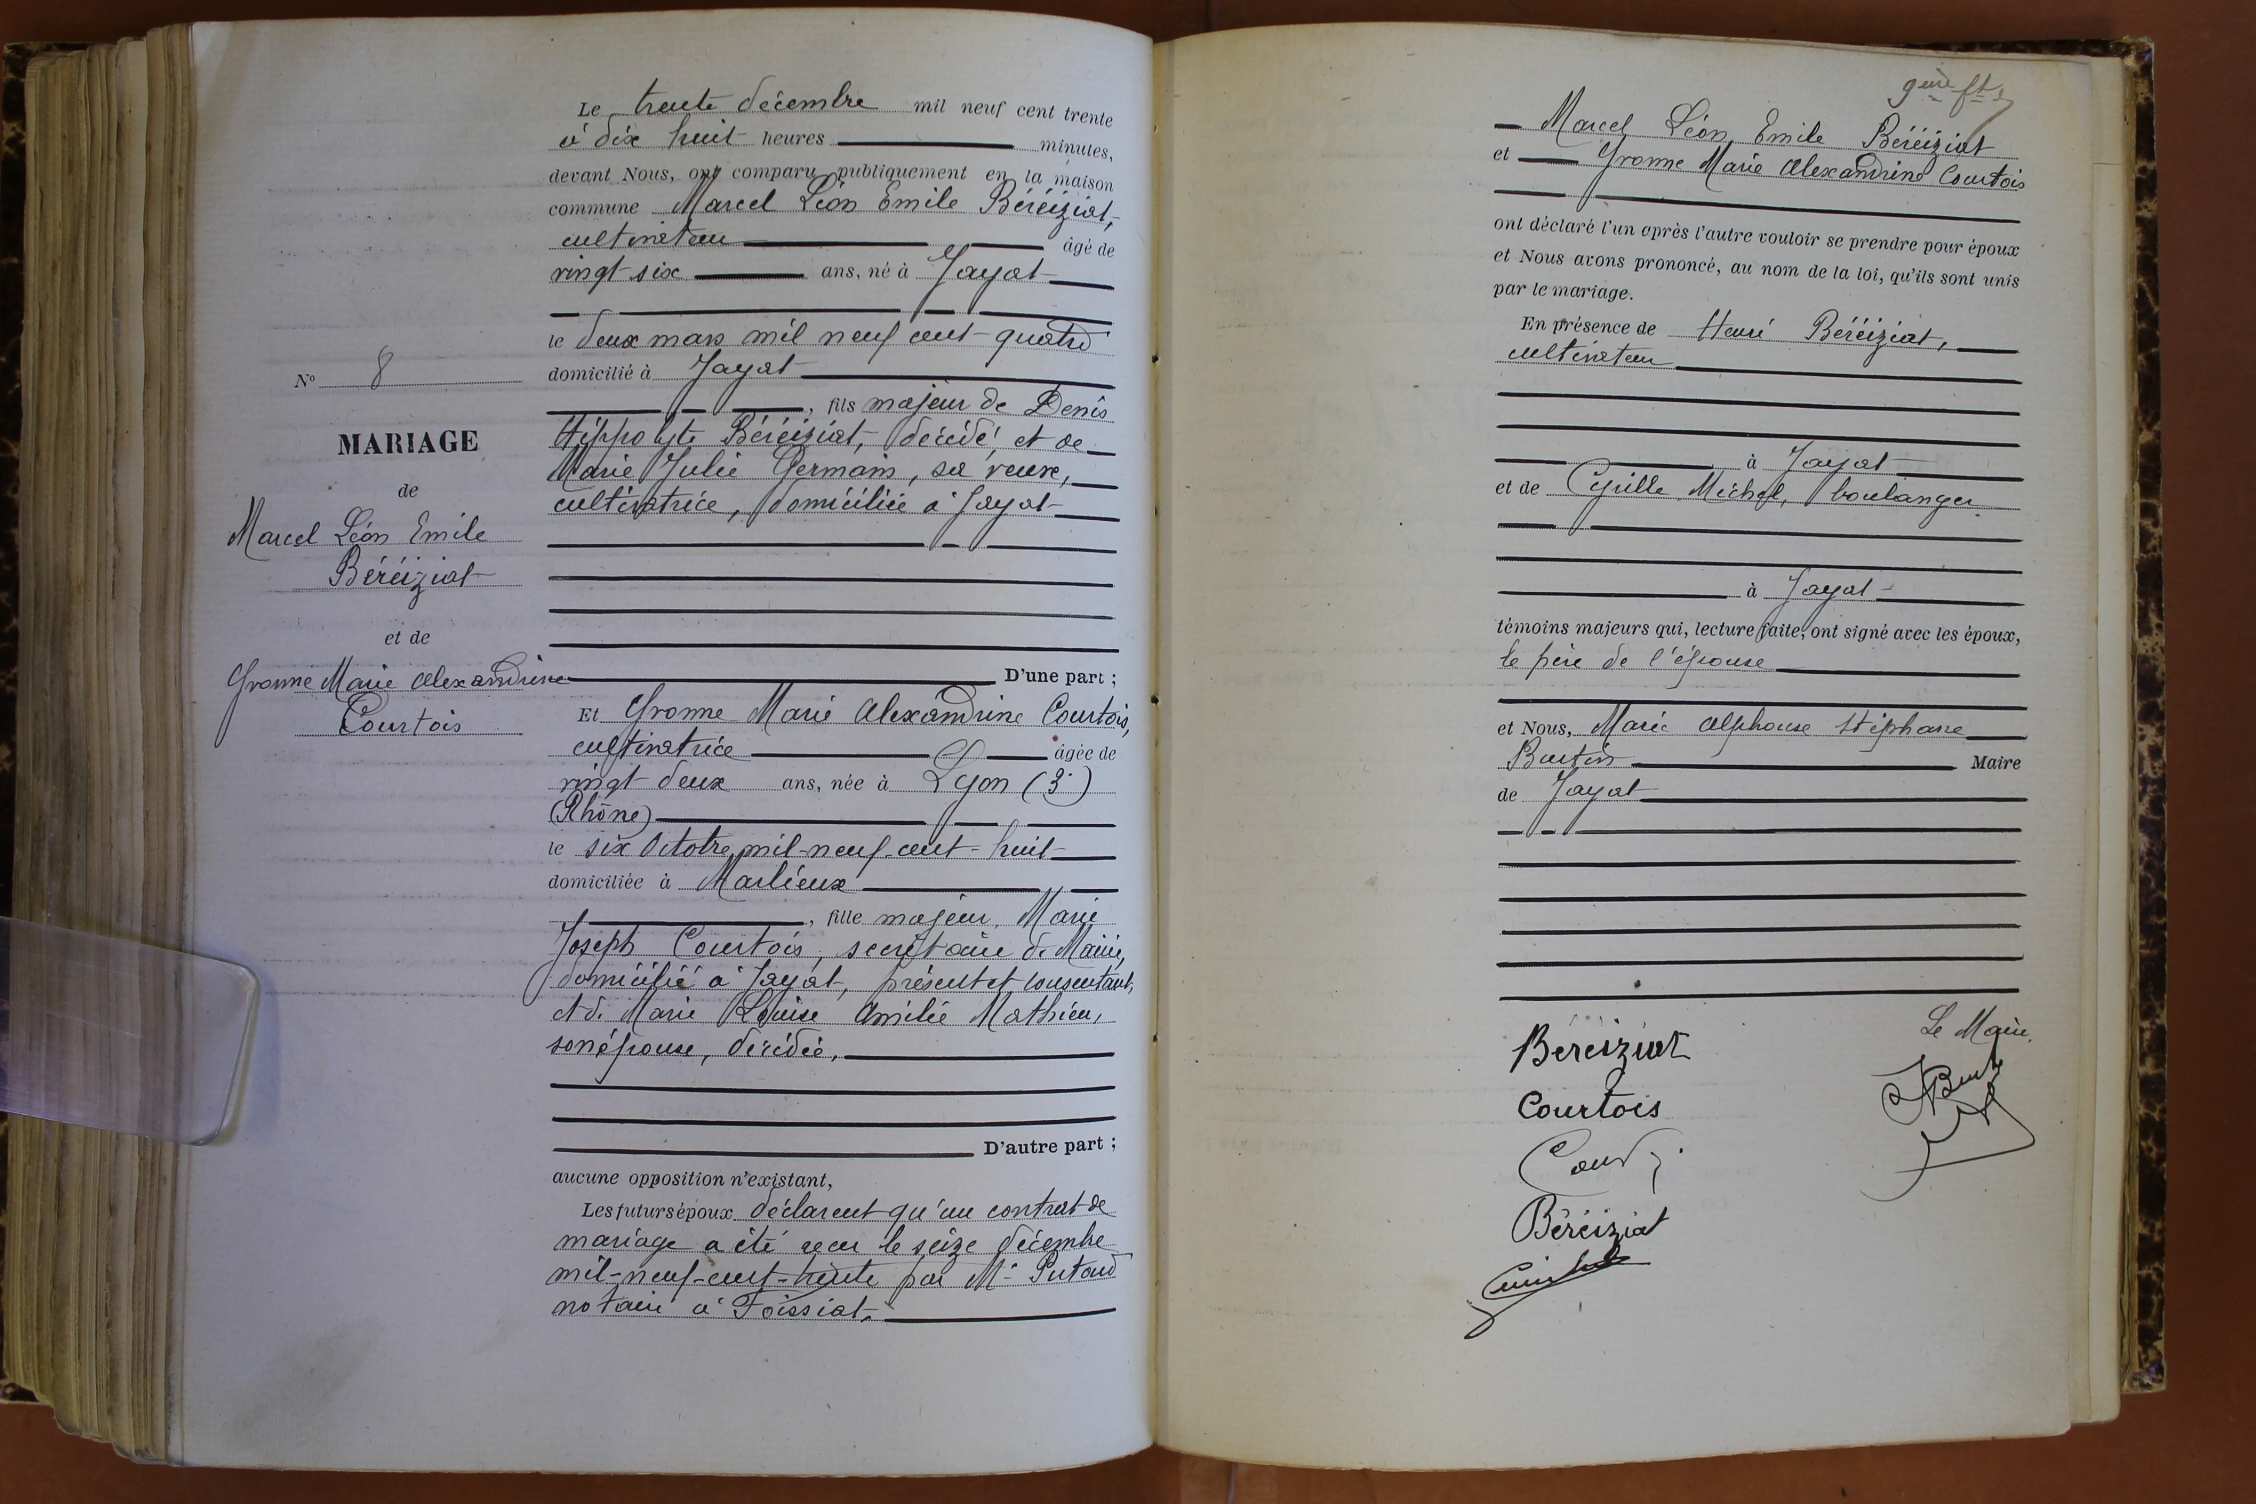 N° 8
MARIAGE
de
Marcel Léon Emile
Béréiziat
et de
Yvonne Marie Alexandrine
Courtois
Le trente décembre mil neuf cent trente
à dix huit heures minutes,
devant Nous, ont comparu publiquement en la maison
commune Marcel Léon Emile Béréiziat,
cultivateur âgé de
vingt six ans, né à Jayat
le deux mars mil neuf cent quatre
domicilié à Jayat
, fils majeur de Denis
Hippolyte Béréiziat, décédé, et de
Marie Julie Germain, sa veuve,
cultivatrice, domiciliée à Jayat
D'une part ;
Et Yvonne Marie Alexandrine Courtois,
cultivatrice âgée de
vingt deux ans, née à Lyon (3e)
(Rhône)
le six Octobre mil-neuf-cent-huit
domiciliée à Marlieux
, fille majeur, Marie
Joseph Courtois, secrétaire de Mairie,
domicilié à Jayat, présent et consentant,
et de Marie Louise Amélie Mathieu,
son épouse, décédée,
D'autre part ;
aucune opposition n'existant,
Les futurs époux déclarent qu'un contrat de
mariage a été reçu le seize décembre
mil-neuf-cent-trente par Me Putaud
notaire à Foissiat.
Marcel Léon Emile Béréiziat
et Yvonne Marie Alexandrine Courtois
ont déclaré l'un après l'autre vouloir se prendre pour époux
et Nous avons prononcé, au nom de la loi, qu'ils sont unis
par le mariage.
En présence de Henri Béréiziat,
cultivateur
à Jayat
et de Cyrille Michel, boulanger
à Jayat
témoins majeurs qui, lecture faite, ont signé avec les époux,
le père de l'épouse
et Nous, Marie Alphonse Stéphane
Burtin Maire
de Jayat
Le Maire,
Béréiziat
Courtois
Béréiziat